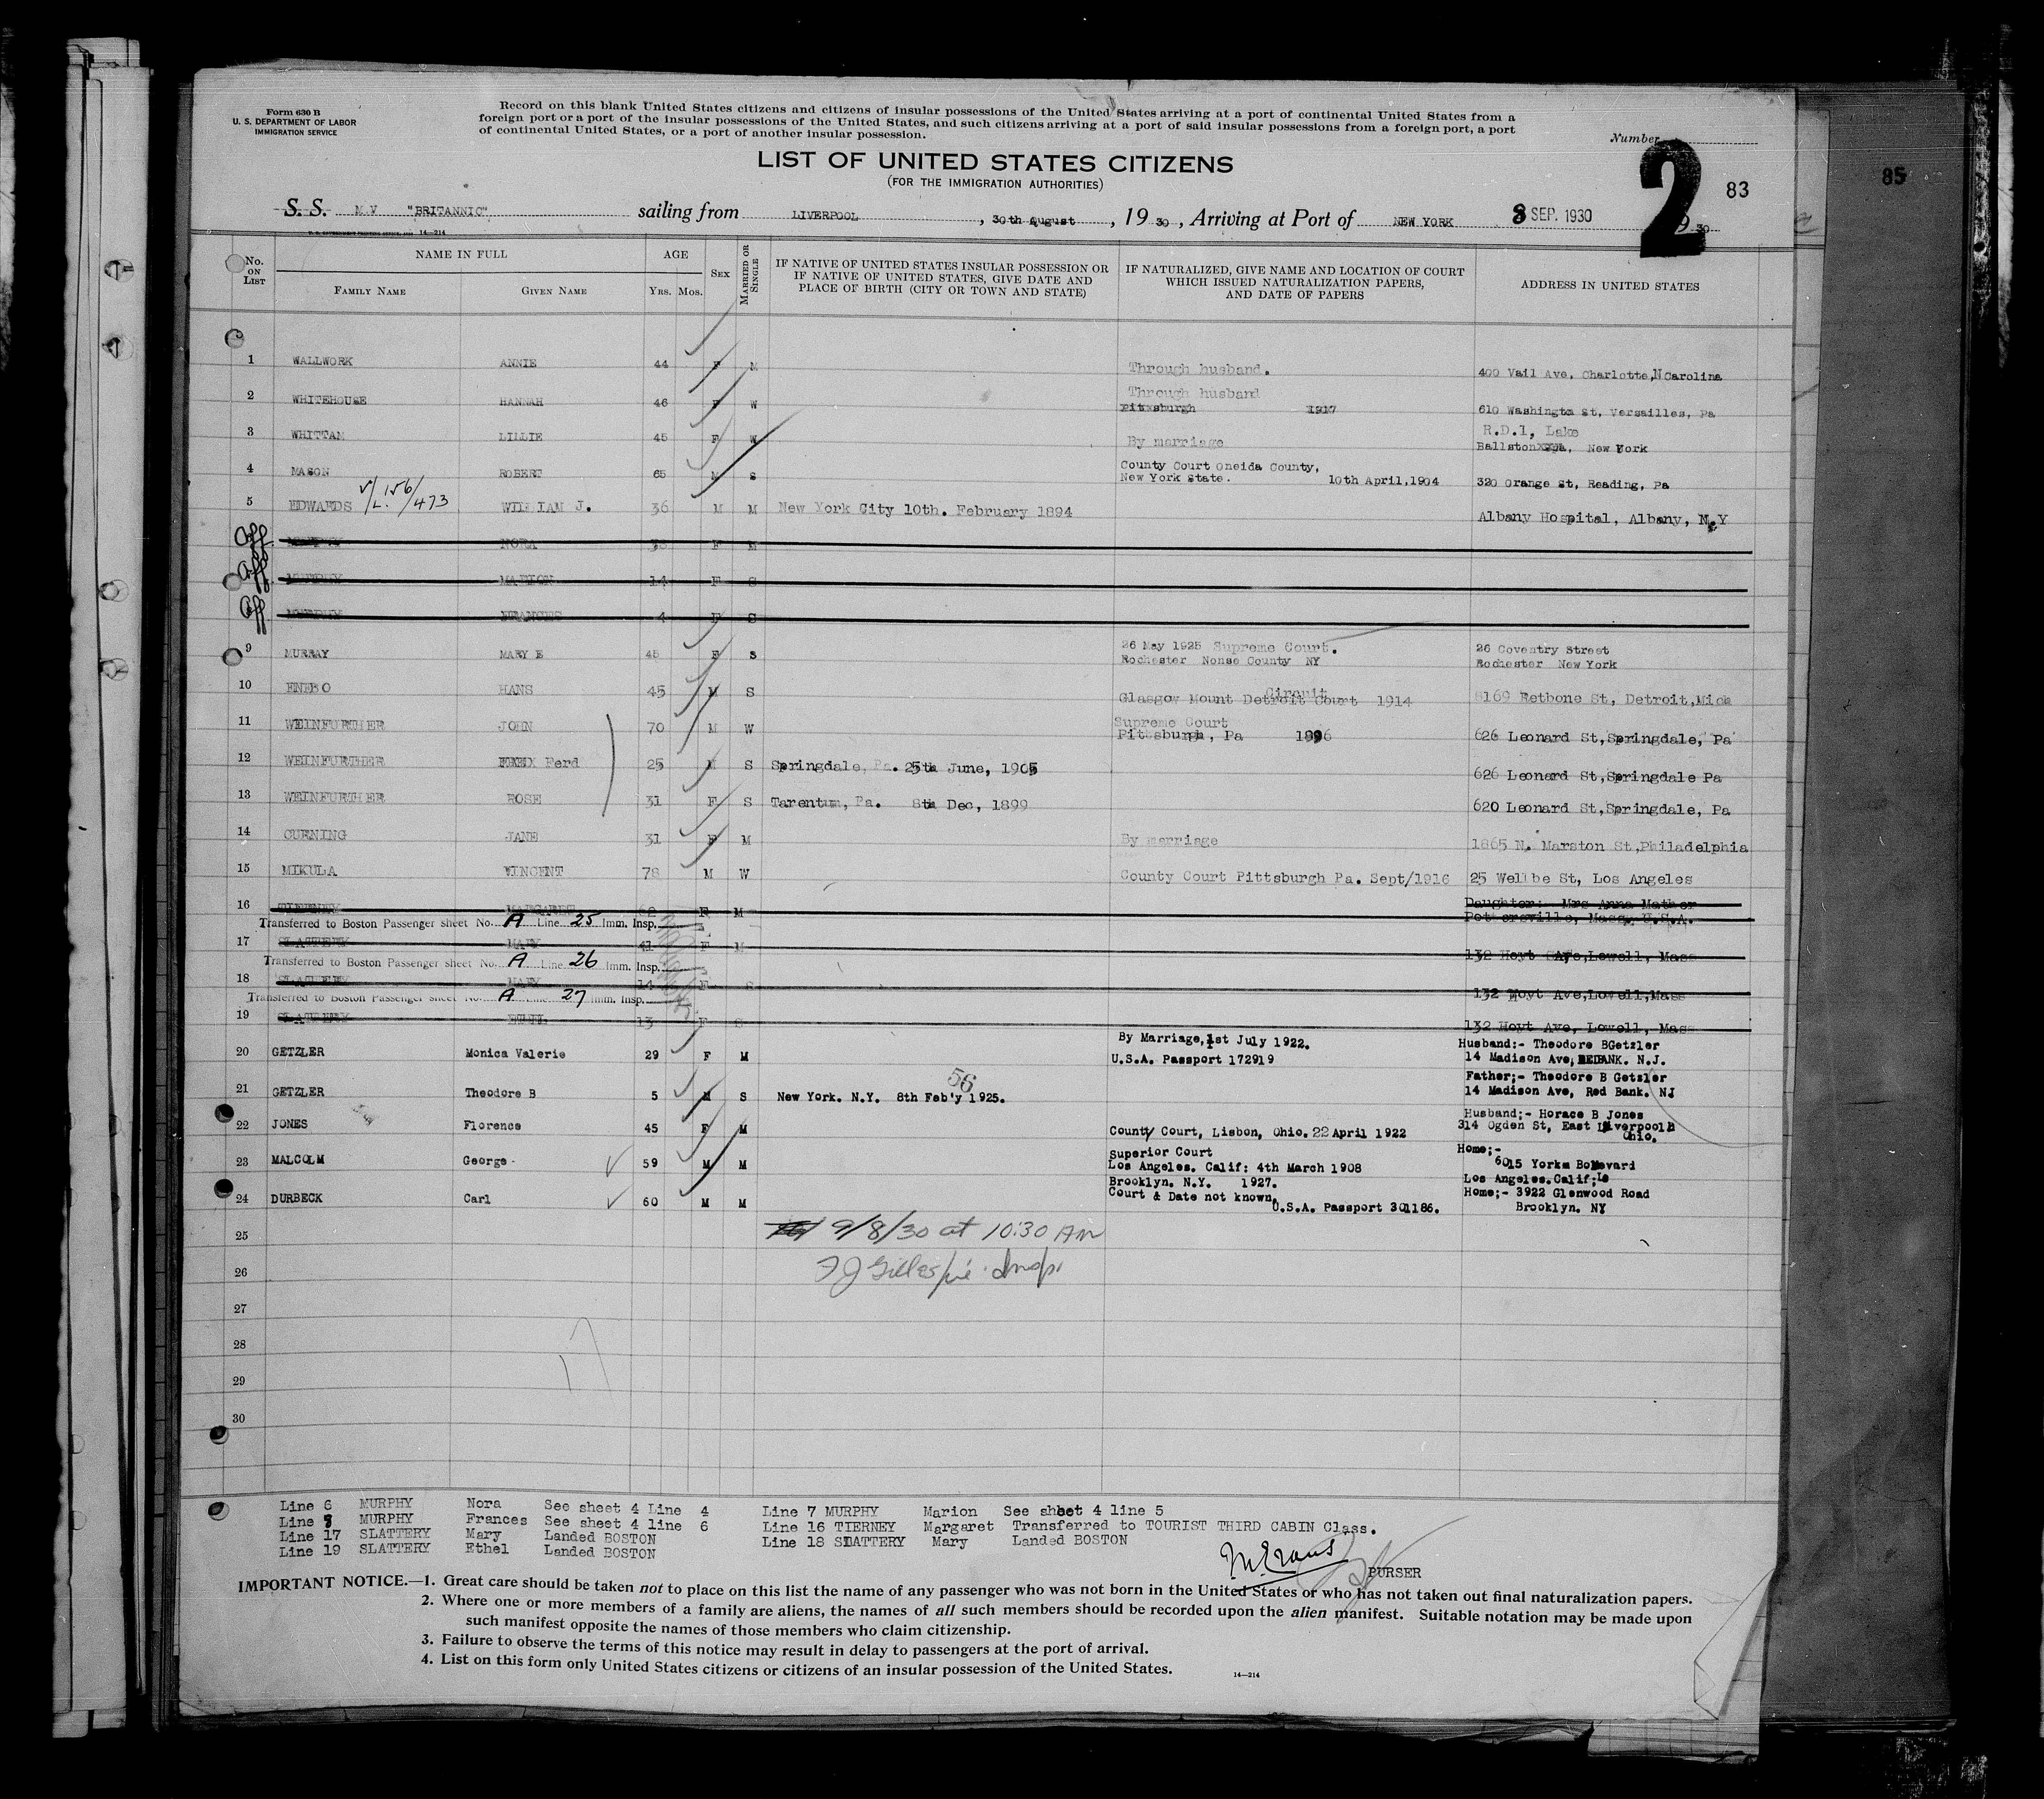 Form 630 B
U. S. DEPARTMENT OF LABOR
IMMIGRATION SERVICE
Record on this blank United States citizens and citizens of insular possessions of the United States arriving at a port of continental United States from a
foreign port or a port of the insular possessions of the United States, and such citizens arriving at a port of said insular possessions from a foreign port, a port
of continental United States, or a port of another insular possession.
Number
2
83
85
LIST OF UNITED STATES CITIZENS
(FOR THE IMMIGRATION AUTHORITIES)
S. S. M V "BRITANNIC" sailing from LIVERPOOL, 30th August, 19 30, Arriving at Port of NEW YORK 8 SEP. 1930 30
14—214
No. ON LIST
NAME IN FULL
FAMILY NAME GIVEN NAME
AGE
YRS. MOS.
SEX
MARRIED OR SINGLE
IF NATIVE OF UNITED STATES INSULAR POSSESSION OR
IF NATIVE OF UNITED STATES, GIVE DATE AND
PLACE OF BIRTH (CITY OR TOWN AND STATE)
IF NATURALIZED, GIVE NAME AND LOCATION OF COURT
WHICH ISSUED NATURALIZATION PAPERS,
AND DATE OF PAPERS
ADDRESS IN UNITED STATES
1 WALLWORK ANNIE 44 F M Through husband. 400 Vail Ave. Charlotte, N Carolina
2 WHITEHOUSE HANNAH 46 F W Through husband
Pittsburgh 1917 610 Washingtn St, Versailles, Pa
3 WHITTAM LILLIE 45 F W By marriage R.D.1, Lake
Ballston, New York
4 MASON ROBERT 65 M S County Court Oneida County,
New York State. 10th April, 1904 320 Orange St, Reading, Pa
5 EDWARDS V/L. 156/473 WILLIAM J. 36 M M New York City 10th. February 1894 Albany Hospital, Albany, N.Y
Aff. MURPHY NORA 38 F M
Aff. MURPHY MARION 14 F S
Aff MURPHY FRANCES 4 F S
9 MURRAY MARY E 45 F S 26 May 1925 Supreme Court.
Rochester Nonse County NY
26 Coventry Street
Rochester New York
10 ENEBO HANS 45 M S Glasgow Mount Detroit Circuit Court 1914 8169 Retbone St, Detroit, Mich
11 WEINFURTHER JOHN 70 M W Supreme Court
Pittsburgh, Pa 1896 626 Leonard St, Springdale, Pa
12 WEINFURTHER Ferd 25 M S Springdale, Pa. 25th June, 1905 626 Leonard St, Springdale Pa
13 WEINFURTHER ROSE 31 F S Tarentum, Pa. 8th Dec, 1899 620 Leonard St, Springdale, Pa
14 CURNING JANE 31 F M By marriage 1865 N. Marston St, Philadelphia
15 MIKULA VINCENT 78 M W County Court Pittsburgh Pa. Sept/1916 25 Wellbe St, Los Angeles
16 TIERNEY MARGARET 62 F M Daughter: Mrs Anna Mather
Pottersville, Mass, U.S.A.
Transferred to Boston Passenger sheet No. A Line 25 Imm. Insp.
17 SLATTERY MARY 41 F M 132 Hoyt Ave, Lowell, Mass
Transferred to Boston Passenger sheet No. A Line 26 Imm. Insp.
18 SLATTERY MARY 14 F S 132 Hoyt Ave, Lowell, Mass
Transferred to Boston Passenger sheet No. A Line 27 Imm. Insp.
19 SLATTERY ETHEL 13 F S 132 Hoyt Ave, Lowell, Mass
20 GETZLER Monica Valerie 29 F M By Marriage, 1st July 1922.
U.S.A. Passport 172919
Husband:- Theodore BGetzler
14 Madison Ave, REDBANK. N.J.
56
21 GETZLER Theodore B 5 M S New York. N.Y. 8th Feb'y 1925.
Father;- Theodore B Getzler
14 Madison Ave, Red Bank. NJ
22 JONES Florence 45 F M County Court, Lisbon, Ohio. 22 April 1922
Husband;- Horace B Jones
314 Ogden St, East Liverpool
Ohio.
23 MALCOLM George 59 M M Superior Court
Los Angeles. Calif: 4th March 1908
Home;-
6015 Yorkm Bolevard
Los Angeles. Calif;
24 DURBECK Carl 60 M M Brooklyn. N.Y. 1927.
Court & Date not known.
U.S.A. Passport 301186.
Home;- 3922 Glenwood Road
Brooklyn. NY
25 9/8/30 at 10:30 AM
26 F J Gillespie Insp.
27
28
29
30
Line 6 MURPHY Nora See sheet 4 Line 4 Line 7 MURPHY Marion See sheet 4 line 5
Line 8 MURPHY Frances See sheet 4 line 6 Line 16 TIERNEY Margaret Transferred to TOURIST THIRD CABIN Class.
Line 17 SLATTERY Mary Landed BOSTON Line 18 SLATTERY Mary Landed BOSTON
Line 19 SLATTERY Ethel Landed BOSTON
PURSER
IMPORTANT NOTICE.—1. Great care should be taken not to place on this list the name of any passenger who was not born in the United States or who has not taken out final naturalization papers.
2. Where one or more members of a family are aliens, the names of all such members should be recorded upon the alien manifest. Suitable notation may be made upon
such manifest opposite the names of those members who claim citizenship.
3. Failure to observe the terms of this notice may result in delay to passengers at the port of arrival.
4. List on this form only United States citizens or citizens of an insular possession of the United States.
14—214